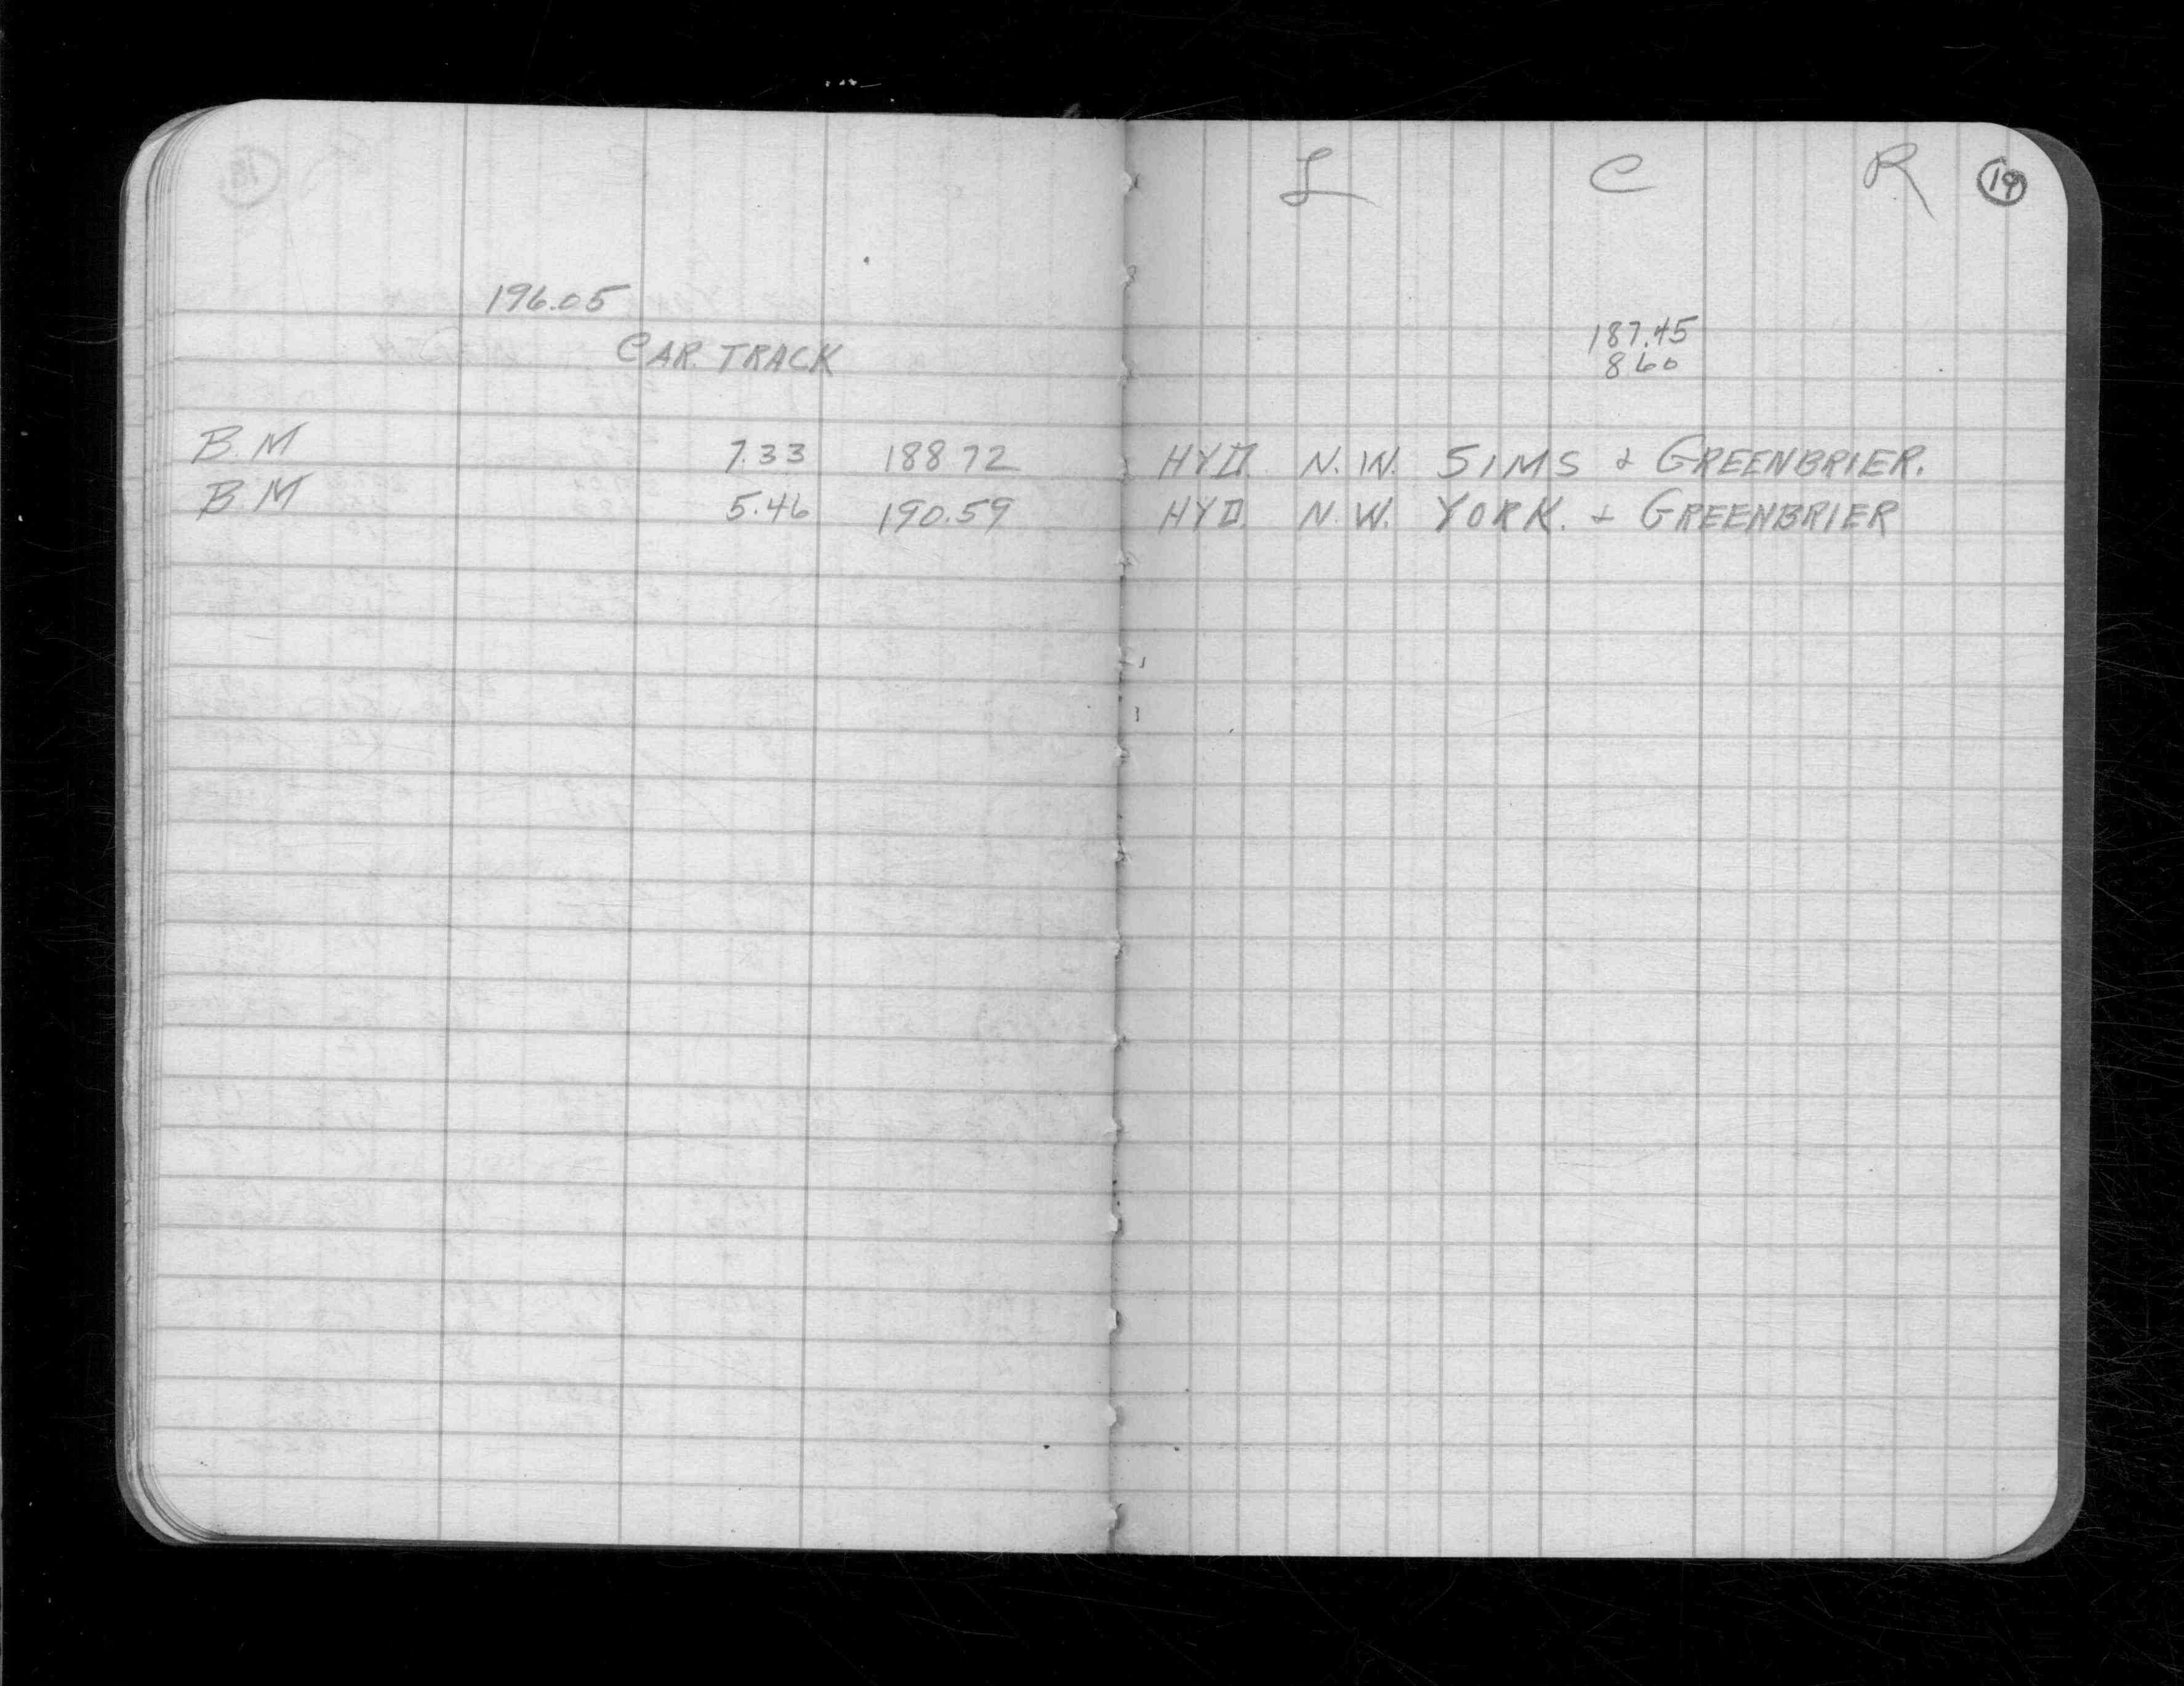 L C R 19
196.05
CAR. TRACK
187.45
8 60
B.M 7.33 188 72 HYD. N.W. SIMS & GREENBRIER.
B.M 5.46 190.59 HYD. N.W. YORK. & GREENBRIER